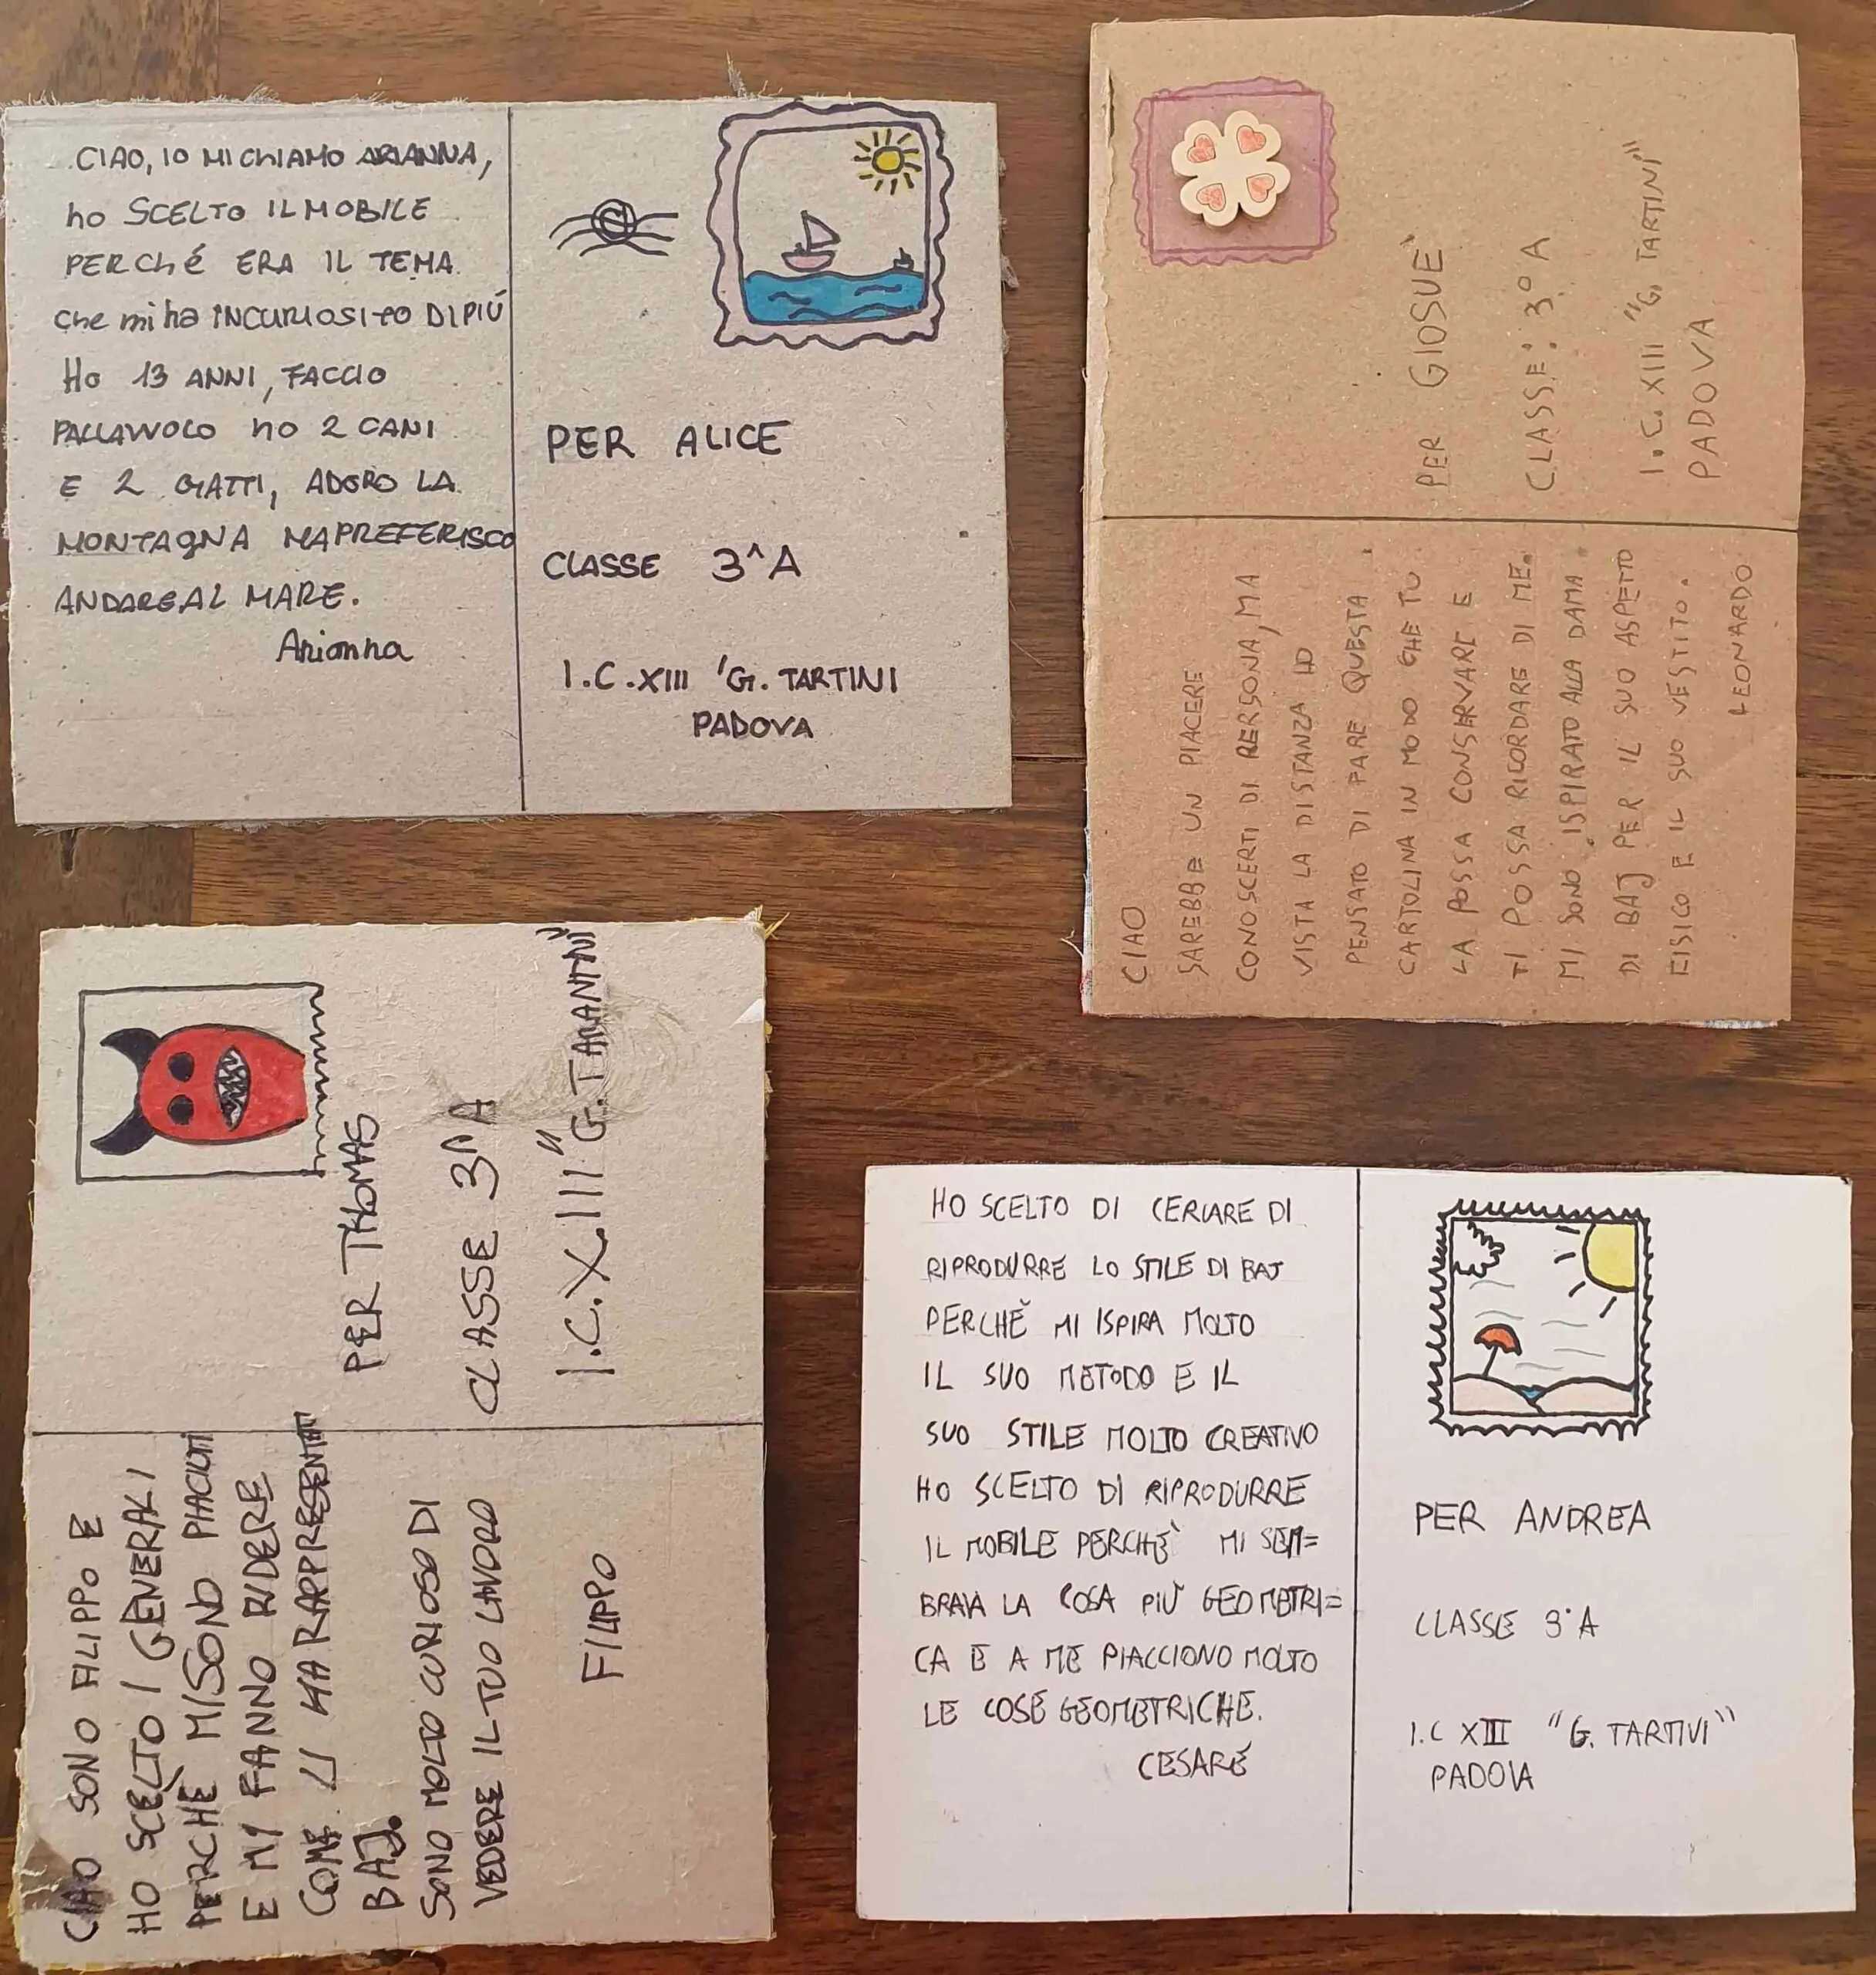 CIAO, IO MI ChIAMO ARIANNA,
ho SCELTO IL MOBILE
PERChé ERA IL TEMA
Che mi ha INCURIOSITO DI PIÚ
Ho 13 ANNI, FACCIO
PALLAVVOLO ho 2 CANI
E 2 GATTI, ADORO LA
MONTAGNA MA PREFERISCO
ANDARE AL MARE.
Arianna
PER ALICE
CLASSE 3^A
I.C.XIII 'G. TARTINI
PADOVA
PER GIOSUÈ
CLASSE: 3° A
I.C. XIII "G. TARTINI"
PADOVA
CIAO
SAREBBE UN PIACERE
CONOSCERTI DI PERSONA, MA
VISTA LA DISTANZA HO
PENSATO DI FARE QUESTA
CARTOLINA IN MODO CHE TU
LA POSSA CONSERVARE E
TI POSSA RICORDARE DI ME.
MI SONO ISPIRATO ALLA DAMA
DI BAJ PER IL SUO ASPETTO
FISICO E IL SUO VESTITO.
LEONARDO
PER THOMAS
CLASSE 3^A
I.C.XIII "G.TARANTINI"
CIAO SONO FILIPPO E
HO SCELTO I GENERALI
PERCHÈ MI SONO PIACIUTI
E MI FANNO RIDERE
COME LI HA RAPPRESENTATI
BAJ.
SONO MOLTO CURIOSO DI
VEDERE IL TUO LAVORO
FILIPPO
HO SCELTO DI CERCARE DI
RIPRODURRE LO STILE DI BAJ
PERCHÈ MI ISPIRA MOLTO
IL SUO METODO E IL
SUO STILE MOLTO CREATIVO
HO SCELTO DI RIPRODURRE
IL MOBILE PERCHÈ MI SEM=
BRAVA LA COSA PIÙ GEOMETRI=
CA E A ME PIACCIONO MOLTO
LE COSE GEOMETRICHE.
CESARE
PER ANDREA
CLASSE 3°A
I.C XIII "G. TARTIVI"
PADOVA